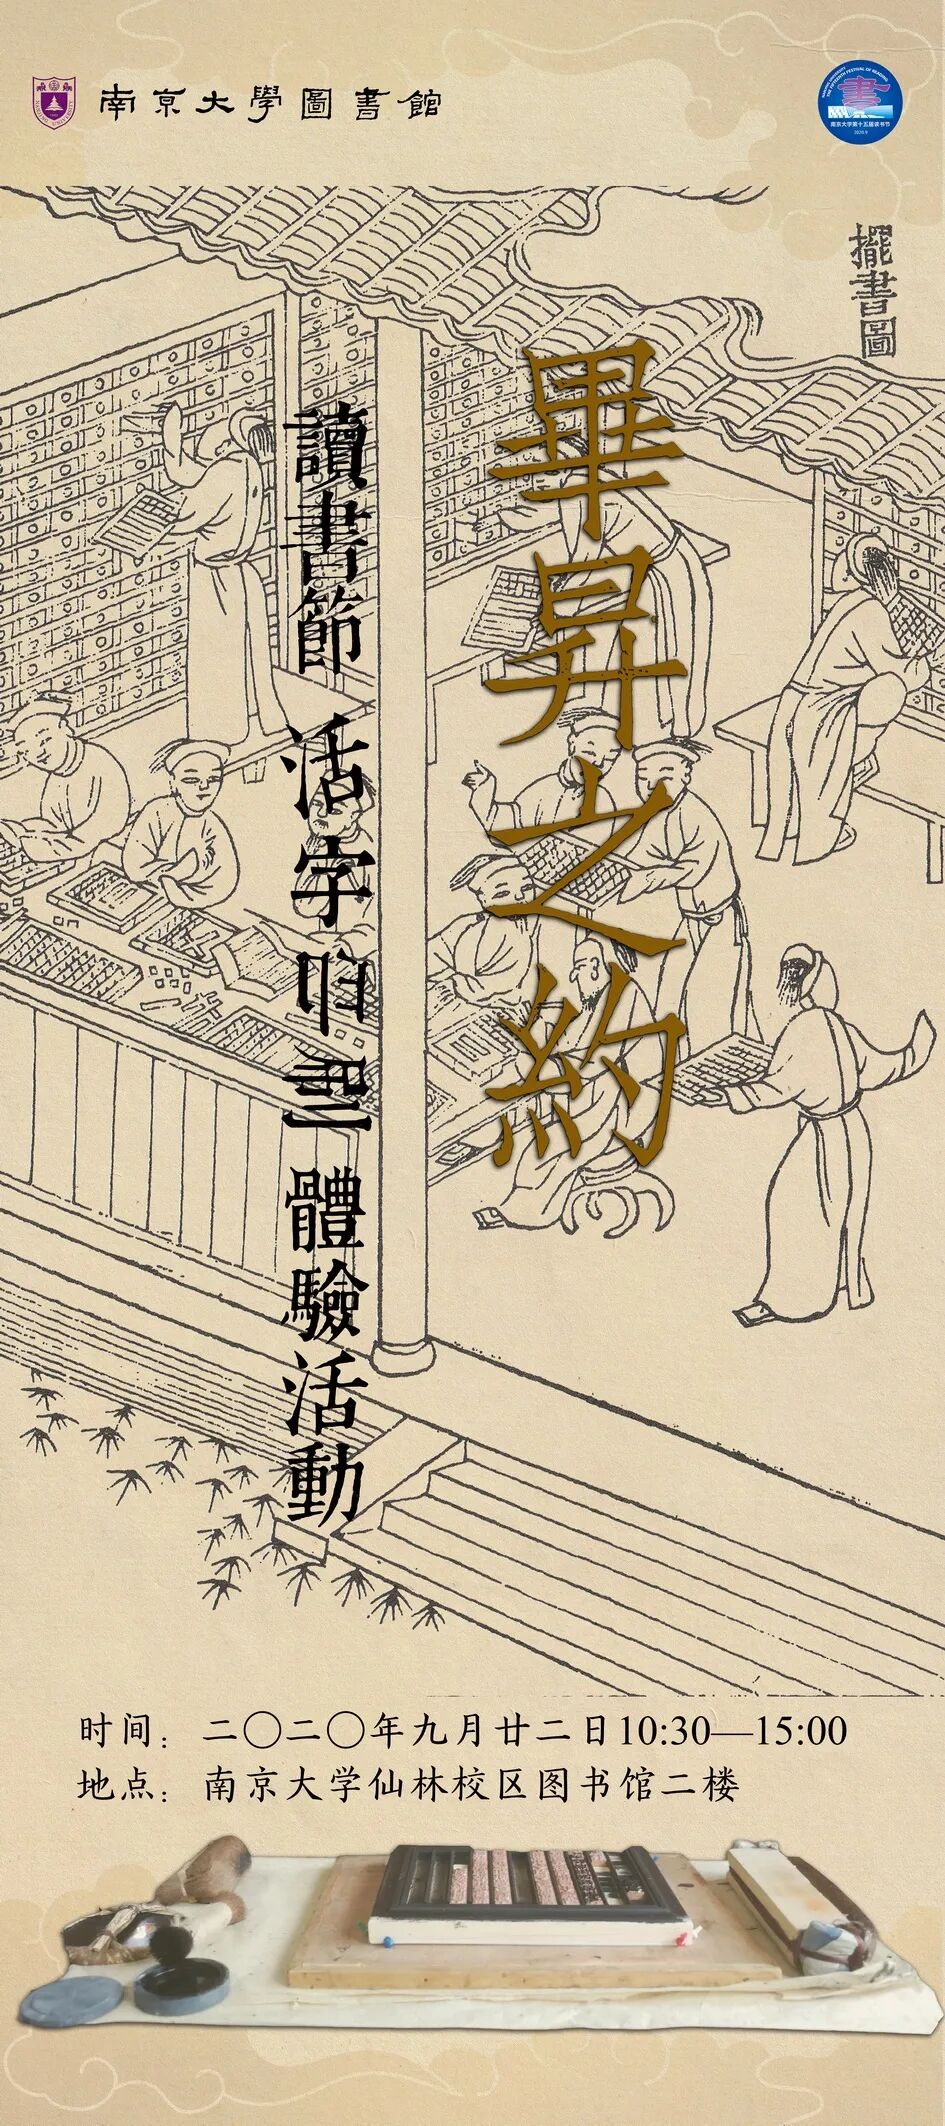 南京大學圖書館
NANJING UNIVERSITY
THE FIFTEENTH FESTIVAL OF READING
書
南京大学第十五届读书节
2020.9
擺書圖
畢昇之約
讀書節 活字印刷體驗活動
时间：二〇二〇年九月廿二日10:30—15:00
地点：南京大学仙林校区图书馆二楼